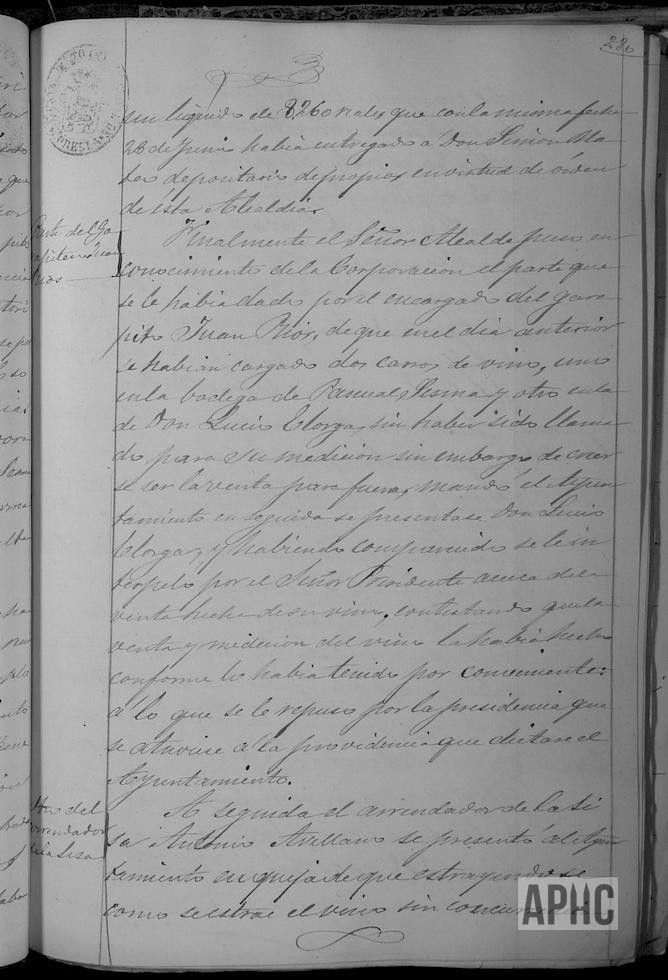 280
un líquido de 8,260 reales que con la misma fecha
28 de Junio habia entregado á Don Simon Ma-
teo depositario de propios en virtud de órden
de ésta Alcaldia.
Parte del Ga
rapitero Juan
Rios
Finalmente el Señor Alcalde puso en
conocimiento de la Corporacion el parte que
se le habia dado por el encargado del Gara
pito Juan Rios, de que en el dia anterior
se habian cargado dos carros de vino, uno
en la bodega de Pascual Sesma y otro en la
de Don Lucio Elorga, sin haber sido llama
do para su medicion sin embargo de creer
se ser la venta para fuera, mandó el Ayun
tamiento en seguida se presentase Don Lucio
Elorga, y habiendo comparecido se le in
terpeló por el Señor Presidente acerca de la
venta hecha de su vino, contestando que la
venta y medicion del vino la habia hecho
conforme lo habia tenido por conveniente:
á lo que se le repuso por la presidencia que
se atuviese á la providencia que dictare el
Ayuntamiento.
Otro del
arrendador
de la Sisa
A seguida el arrendador de la Si
sa Antonio Avellano se presentó al Ayun
tamiento en queja de que estrayendose
como se estrae el vino sin
APHC